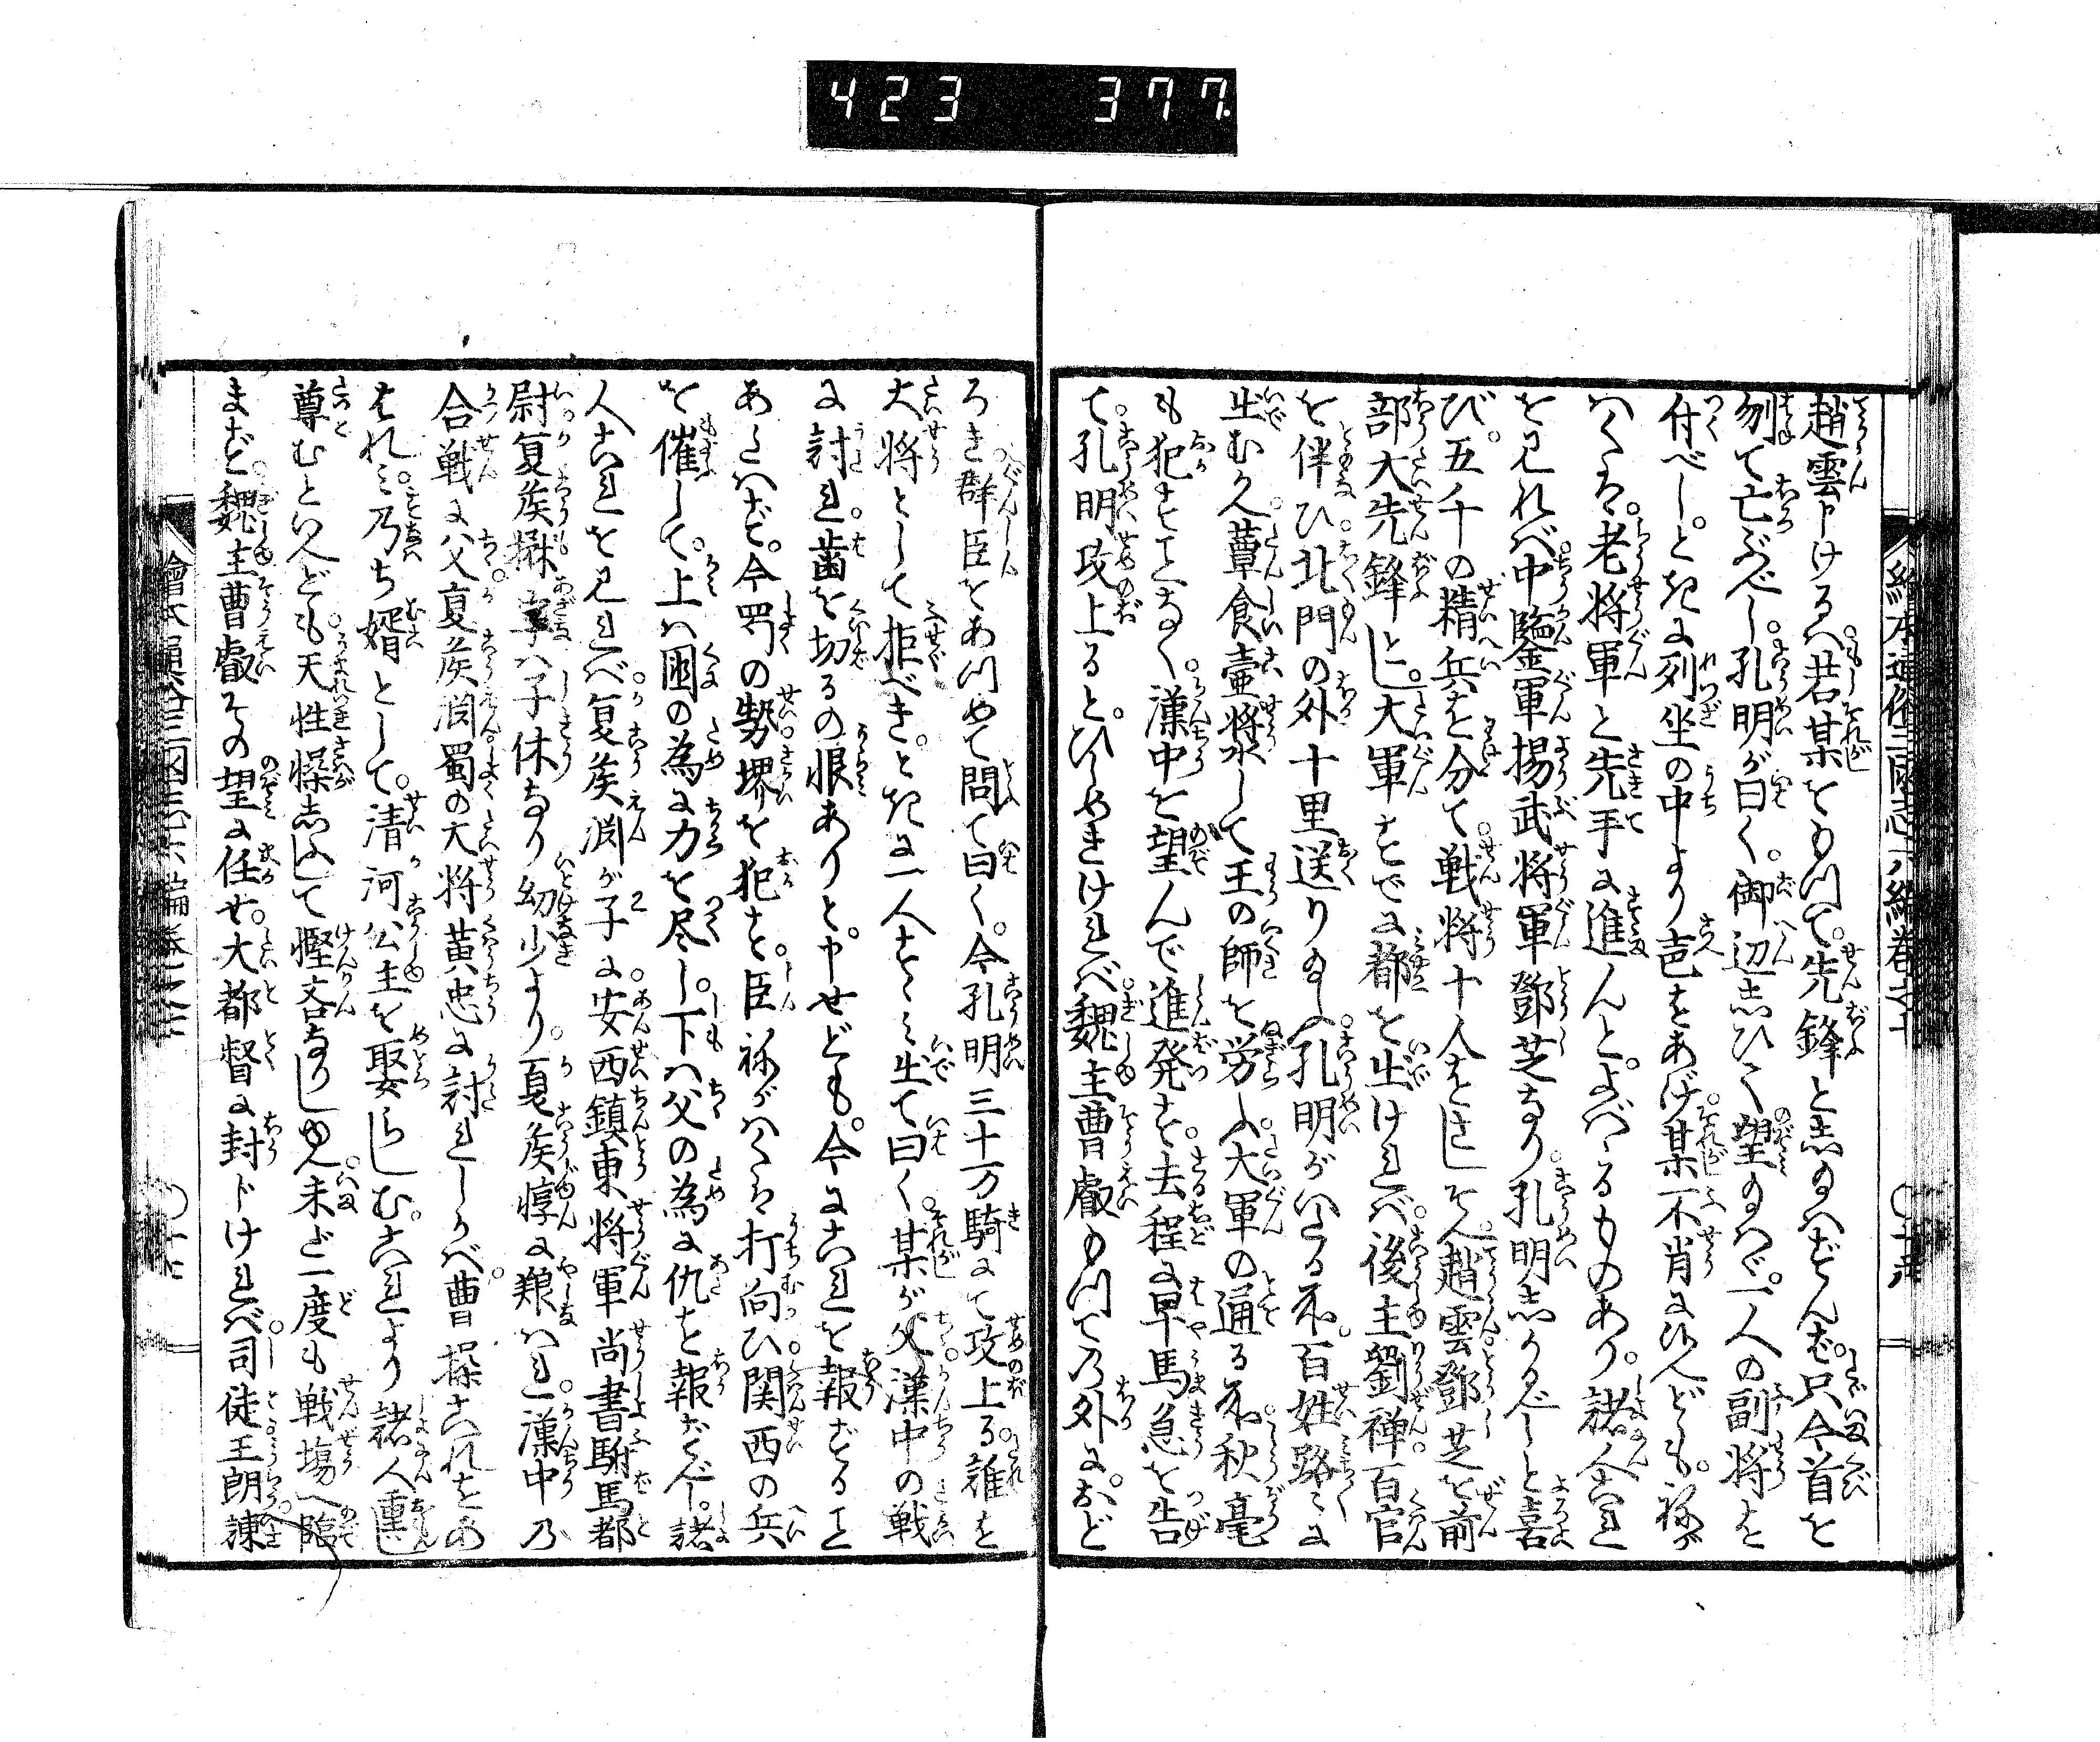 423 377
趙雲申けるハ若某をもつて。先鋒と為給ハずんバ。只今首を
刎て亡ぶべし。孔明が曰く。御辺しひて望給ハヾ。一人の副将を
付べし。とき列坐の中より声をあげ某不肖に候へども。称が
ハくハ。老将軍と先手に進んと。よバゝるものあり。諸人これ
を見れバ中監軍揚武将軍鄧芝なり孔明しかるべしと喜
び。五千の精兵を分て。戦将十人をさしそへ。趙雲鄧芝を前
部大先鋒とし。大軍すでに都を出けれバ。後主劉禅。百官
を伴ひ。北門の外十里送り給ふ。孔明がいたる所。百姓路ミに
出むかへ。蕈食壷漿して王の師を労ふ。大軍の通る所秋毫
も犯すことなく。漢中を望んで進発す。去程に早馬急を告
て。孔明攻上ると。ひしめきけれバ。魏主曹叡もつて乃外に。おど
ろき群臣をあつめて問て曰く。今孔明三十万騎にて攻上る。誰を
大将として拒べき。ときに一人すゝミ出て曰く。某が父漢中の戦
に討れ。歯を切るの恨ありと。申せども。今にこれを報ずること
あたハず。今蜀の勢堺を犯す。臣称がハくハ打向ひ。関西の兵
を催して。上ハ国の為に力を尽し。下ハ父の為に仇を報ずべし。諸
人これを見れバ。夏侯淵が子に。安西鎮東将軍尚書駙馬都
尉夏侯楙字ハ子休なり幼少より。夏侯惇に養ハれ。漢中乃
合戦に父。夏侯淵。蜀の大将黄忠に討れしかバ。曹操これをあ
はれミ乃ち婿として。清河公主を娶らしむ。これより諸人重し
尊むといへども天性懆しふして慳吝なりしゆへ。未ど一度も戦場へ臨
まず。魏主曹叡その望に任せ。大都督に封じけれバ。司徒王朗諫